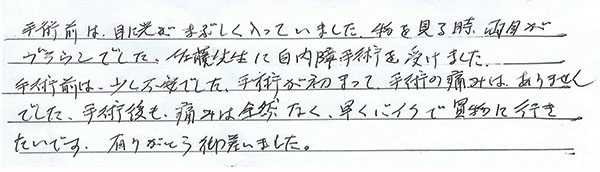 手術前は、目に光がまぶしく入っていました。物を見る時、両目が
ブラウンでした。佐藤先生に白内障手術を受けました。
手術前は、少し不安でした。手術が初まって、手術の痛みは、ありません
でした。手術後も、痛みは全然なく、早くバイクで買物に行き
たいです。有りがとう御座いました。